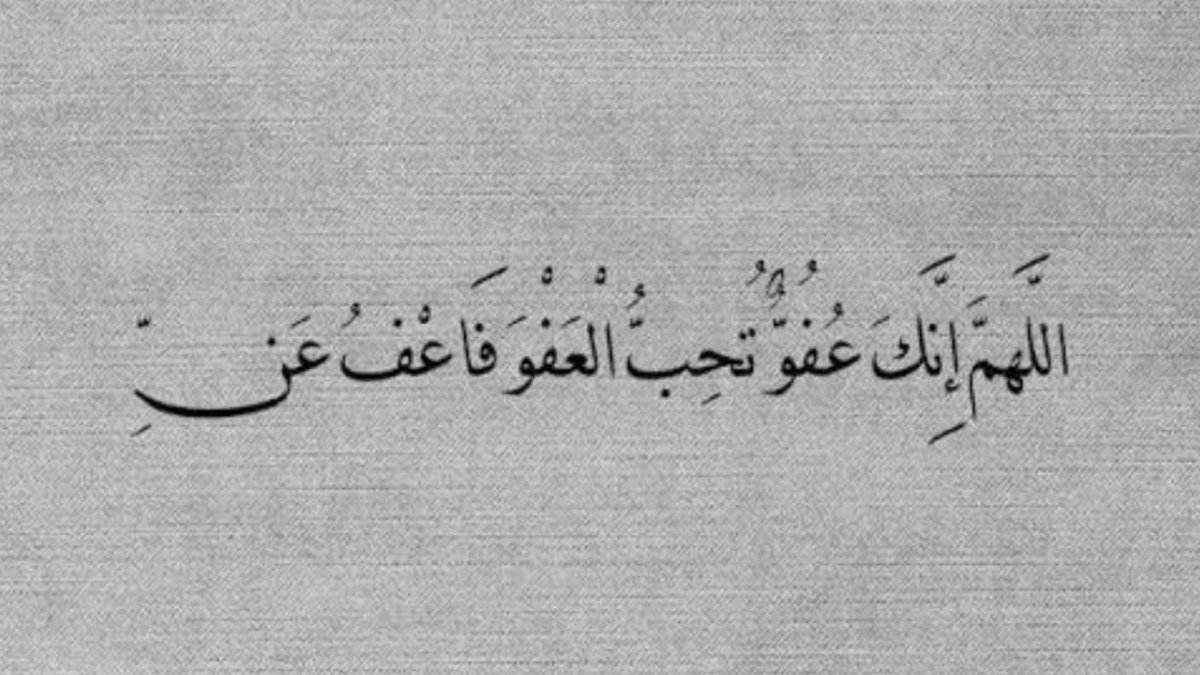 اللَّهُمَّ إِنَّكَ عُفُوٌّ تُحِبُّ الْعَفْوَ فَاعْفُ عَنِّي